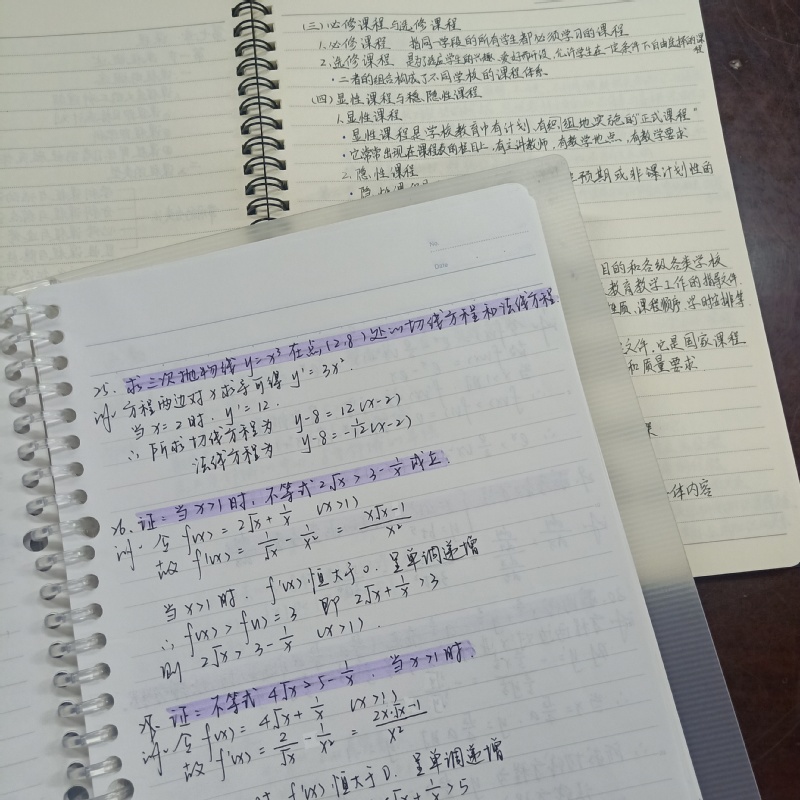 (三) 必修课程与选修课程
1. 必修课程 指同一学段的所有学生都必须学习的课程
2. 选修课程 是为了适应学生的兴趣、爱好而开设, 允许学生在一定条件下自由选择的课程
· 二者的组合构成了不同学校的课程体系.
(四) 显性课程与隐性课程
1. 显性课程
· 显性课程是学校教育中有计划、有组织地实施的"正式课程"
· 它常常出现在课程表的栏目上, 有主讲教师, 有教学地点, 有教学要求
2. 隐性课程
预期或非课计划性的
目的和各级各类学校
教育教学工作的指导文件.
课程顺序, 学时安排等.
文件, 它是国家课程
和质量要求
体内容
No.
Date
25. 求三次抛物线 y=x³ 在点(2,8)处的切线方程和法线方程
方程两边对x求导可得 y'=3x².
当x=2时, y'=12.
∴ 所求切线方程为 y-8=12(x-2)
法线方程为 y-8=-1/12(x-2)
26. 证: 当x>1时, 不等式 2√x>3-1/x 成立.
令 f(x)=2√x+1/x (x>1)
故 f'(x)=1/√x-1/x²=(x√x-1)/x²
当x>1时, f'(x)恒大于0. 呈单调递增
∴ f(x)>f(1)=3 即 2√x+1/x>3
则 2√x>3-1/x (x>1).
证: 不等式 4√x>5-1/x. 当x>1时.
令 f(x)=4√x+1/x (x>1)
故 f'(x)=2/√x-1/x²=(2x·√x-1)/x²
时 f'(x)恒大于0. 呈单调递增
√x+1/x>5